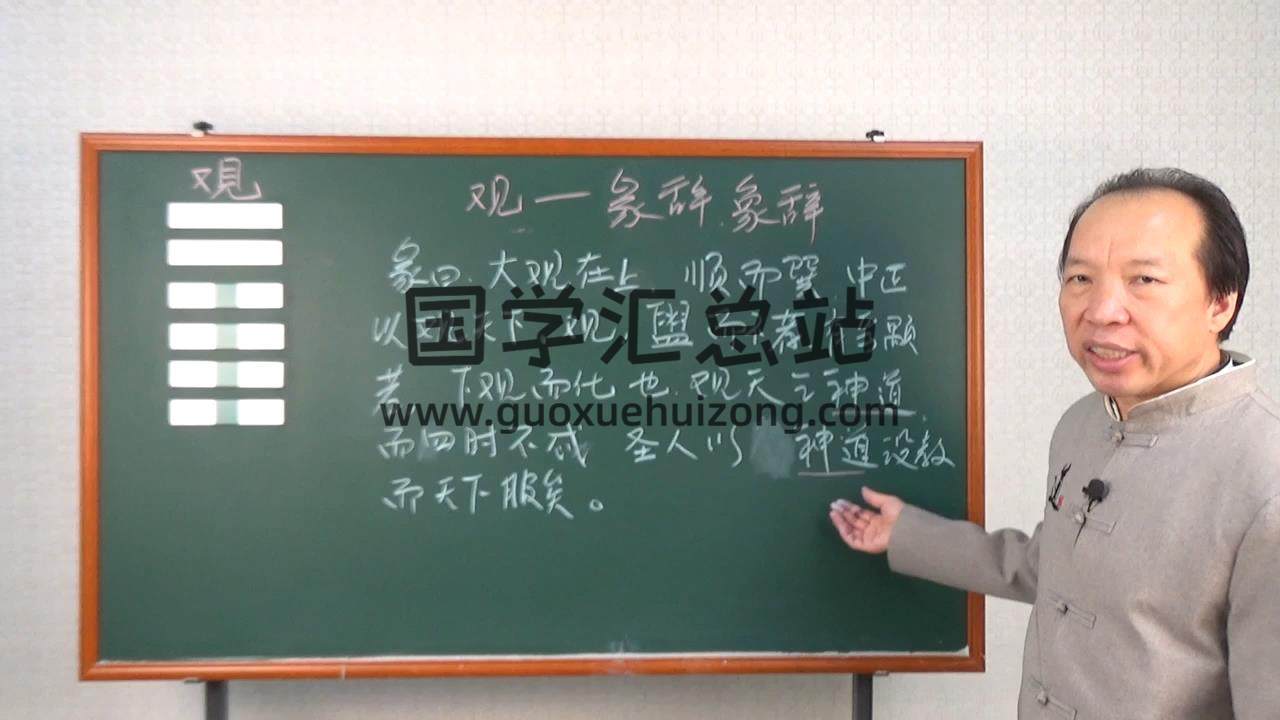 观
观—彖辞.象辞
彖曰.大观在上 顺而巽 中正
以观天下 观 盥而不荐 有孚颙
若 下观而化也.观天之神道.
而四时不忒 圣人以 神道设教
而天下服矣。
国学汇总站
www.guoxuehuizong.com